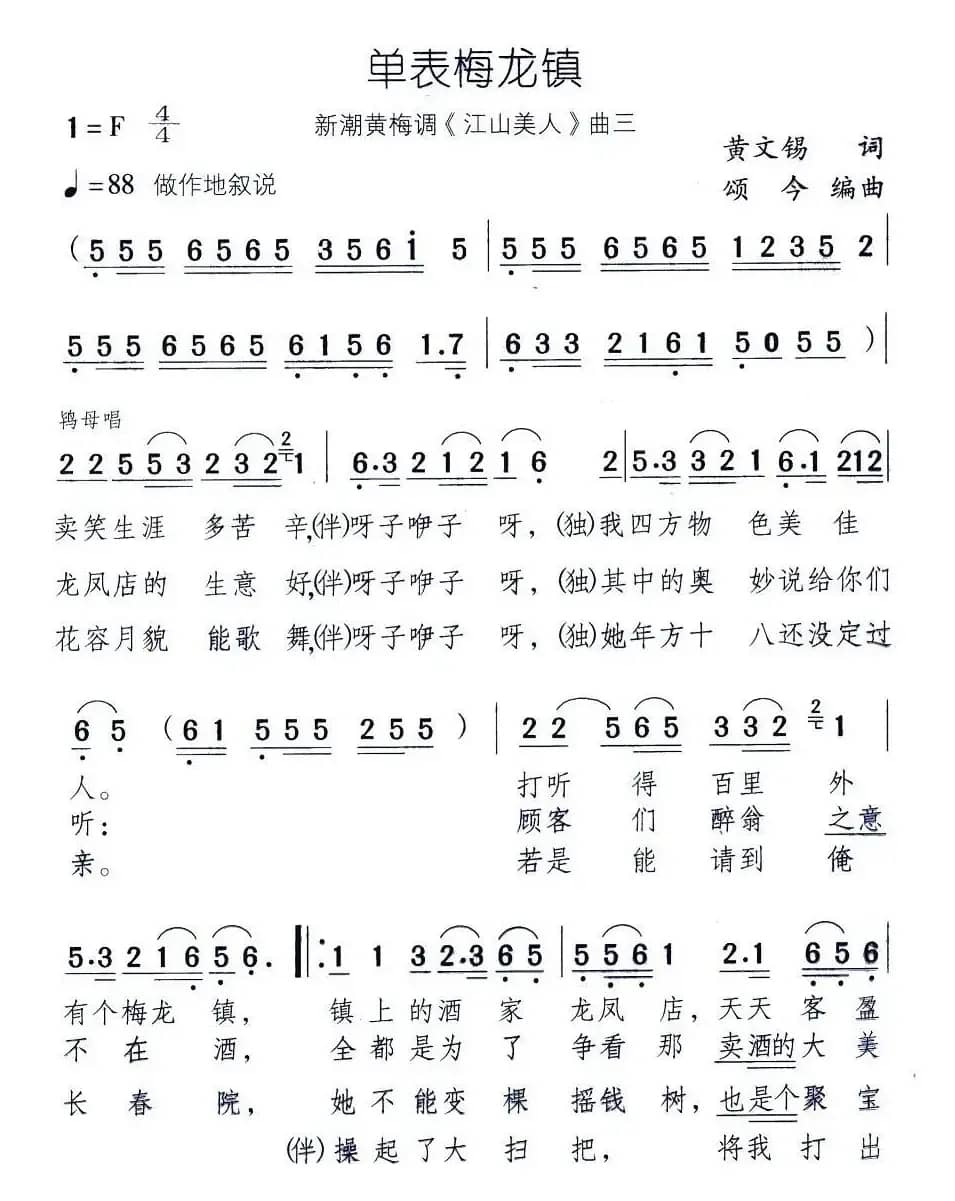 单表梅龙镇
1=F 4/4 新潮黄梅调《江山美人》曲三
黄文锡 词
♩=88 做作地叙说
颂今 编曲
(5 5 5 6 5 6 5 3 5 6 i 5 | 5 5 5 6 5 6 5 1 2 3 5 2 |
5 5 5 6 5 6 5 6 1 5 6 1.7 | 6 3 3 2 1 6 1 5 0 5 5 )|
鸨母唱
2 2 5 5 3 2 3 2 2 1 | 6.3 2 1 2 1 6 2 | 5.3 3 2 1 6.1 2 1 2
卖笑生涯 多苦 辛,(伴)呀子咿子 呀, (独)我四方物 色美 佳
龙凤店的 生意 好,(伴)呀子咿子 呀, (独)其中的奥 妙说给你们
花容月貌 能歌 舞,(伴)呀子咿子 呀, (独)她年方十 八还没定过
6 5 (6 1 5 5 5 2 5 5 ) | 2 2 5 6 5 3 3 2 2 1 |
人。 打听 得 百里 外
听: 顾客 们 醉翁 之意
亲。 若是 能 请到 俺
5.3 2 1 6 5 6. ‖: 1 1 3 2.3 6 5 | 5 5 6 1 2.1 6 5 6
有个梅龙 镇, 镇上的酒 家 龙凤 店,天天客盈
不 在 酒, 全都是为 了 争看 那 卖酒的大 美
长 春 院, 她不能变 棵 摇钱 树,也是个聚 宝
(伴)操起了大 扫 把, 将我 打 出